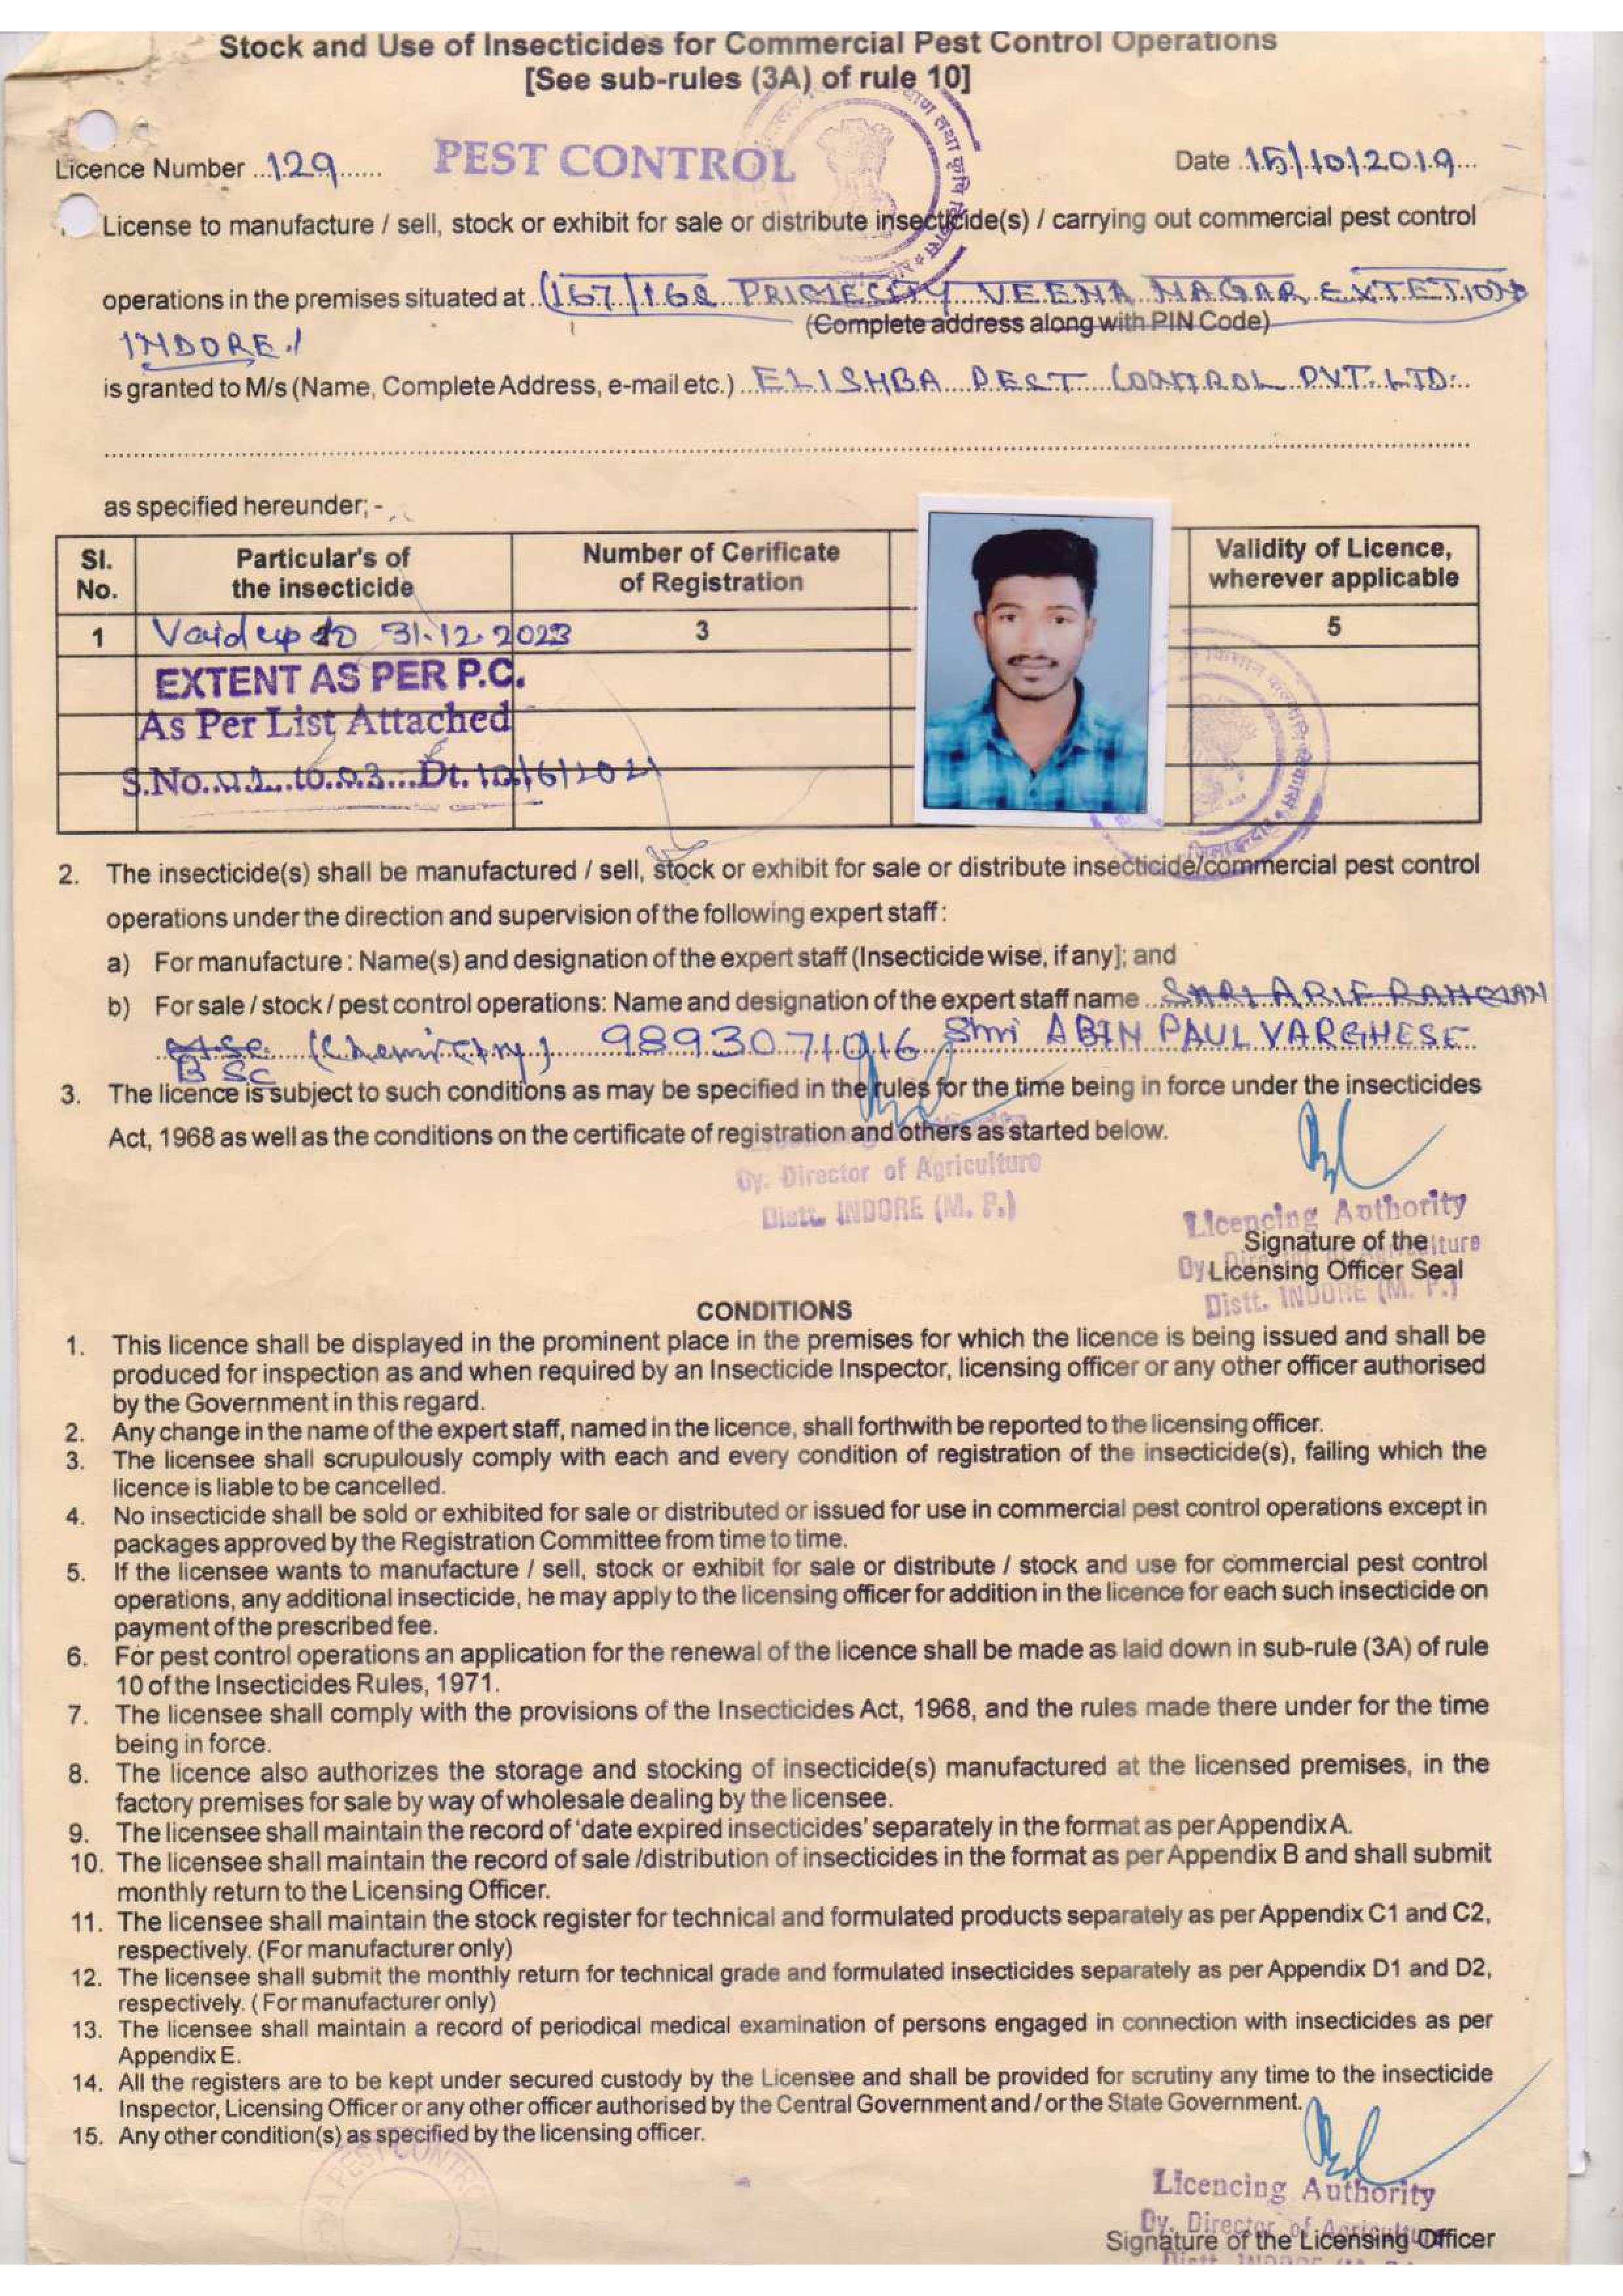 Stock and Use of Insecticides for Commercial Pest Control Operations
[See sub-rules (3A) of rule 10]
Licence Number 129 PEST CONTROL Date 15/10/2019
License to manufacture / sell, stock or exhibit for sale or distribute insecticide(s) / carrying out commercial pest control
operations in the premises situated at (167/168 PRIMECITY VEENA NAGAR EXTETION
(Complete address along with PIN Code)
INDORE
is granted to M/s (Name, Complete Address, e-mail etc.) ELISHBA PEST CONTROL PVT. LTD.
as specified hereunder; -
Sl. No. Particular's of the insecticide Number of Cerificate of Registration Validity of Licence, wherever applicable
1 Vaid up to 31.12.2023 3 5
EXTENT AS PER P.C.
As Per List Attached
S.No. 01 to 03 Dt. 10/6/2021
2. The insecticide(s) shall be manufactured / sell, stock or exhibit for sale or distribute insecticide/commercial pest control
operations under the direction and supervision of the following expert staff :
a) For manufacture : Name(s) and designation of the expert staff (Insecticide wise, if any]; and
b) For sale / stock / pest control operations: Name and designation of the expert staff name SHRI ARIF RAHMAN
M.Sc. (Chemistry) 9893071916 Shri ABIN PAUL VARGHESE
B SC
3. The licence is subject to such conditions as may be specified in the rules for the time being in force under the insecticides
Act, 1968 as well as the conditions on the certificate of registration and others as started below.
Dy. Director of Agriculture
Distt. INDORE (M. P.)
Licencing Authority
Signature of the
Licensing Officer Seal
Distt. INDORE (M. P.)
CONDITIONS
1. This licence shall be displayed in the prominent place in the premises for which the licence is being issued and shall be
produced for inspection as and when required by an Insecticide Inspector, licensing officer or any other officer authorised
by the Government in this regard.
2. Any change in the name of the expert staff, named in the licence, shall forthwith be reported to the licensing officer.
3. The licensee shall scrupulously comply with each and every condition of registration of the insecticide(s), failing which the
licence is liable to be cancelled.
4. No insecticide shall be sold or exhibited for sale or distributed or issued for use in commercial pest control operations except in
packages approved by the Registration Committee from time to time.
5. If the licensee wants to manufacture / sell, stock or exhibit for sale or distribute / stock and use for commercial pest control
operations, any additional insecticide, he may apply to the licensing officer for addition in the licence for each such insecticide on
payment of the prescribed fee.
6. For pest control operations an application for the renewal of the licence shall be made as laid down in sub-rule (3A) of rule
10 of the Insecticides Rules, 1971.
7. The licensee shall comply with the provisions of the Insecticides Act, 1968, and the rules made there under for the time
being in force.
8. The licence also authorizes the storage and stocking of insecticide(s) manufactured at the licensed premises, in the
factory premises for sale by way of wholesale dealing by the licensee.
9. The licensee shall maintain the record of 'date expired insecticides' separately in the format as per Appendix A.
10. The licensee shall maintain the record of sale /distribution of insecticides in the format as per Appendix B and shall submit
monthly return to the Licensing Officer.
11. The licensee shall maintain the stock register for technical and formulated products separately as per Appendix C1 and C2,
respectively. (For manufacturer only)
12. The licensee shall submit the monthly return for technical grade and formulated insecticides separately as per Appendix D1 and D2,
respectively. ( For manufacturer only)
13. The licensee shall maintain a record of periodical medical examination of persons engaged in connection with insecticides as per
Appendix E.
14. All the registers are to be kept under secured custody by the Licensee and shall be provided for scrutiny any time to the insecticide
Inspector, Licensing Officer or any other officer authorised by the Central Government and / or the State Government.
15. Any other condition(s) as specified by the licensing officer.
Licencing Authority
Dy. Director of Agriculture
Signature of the Licensing Officer